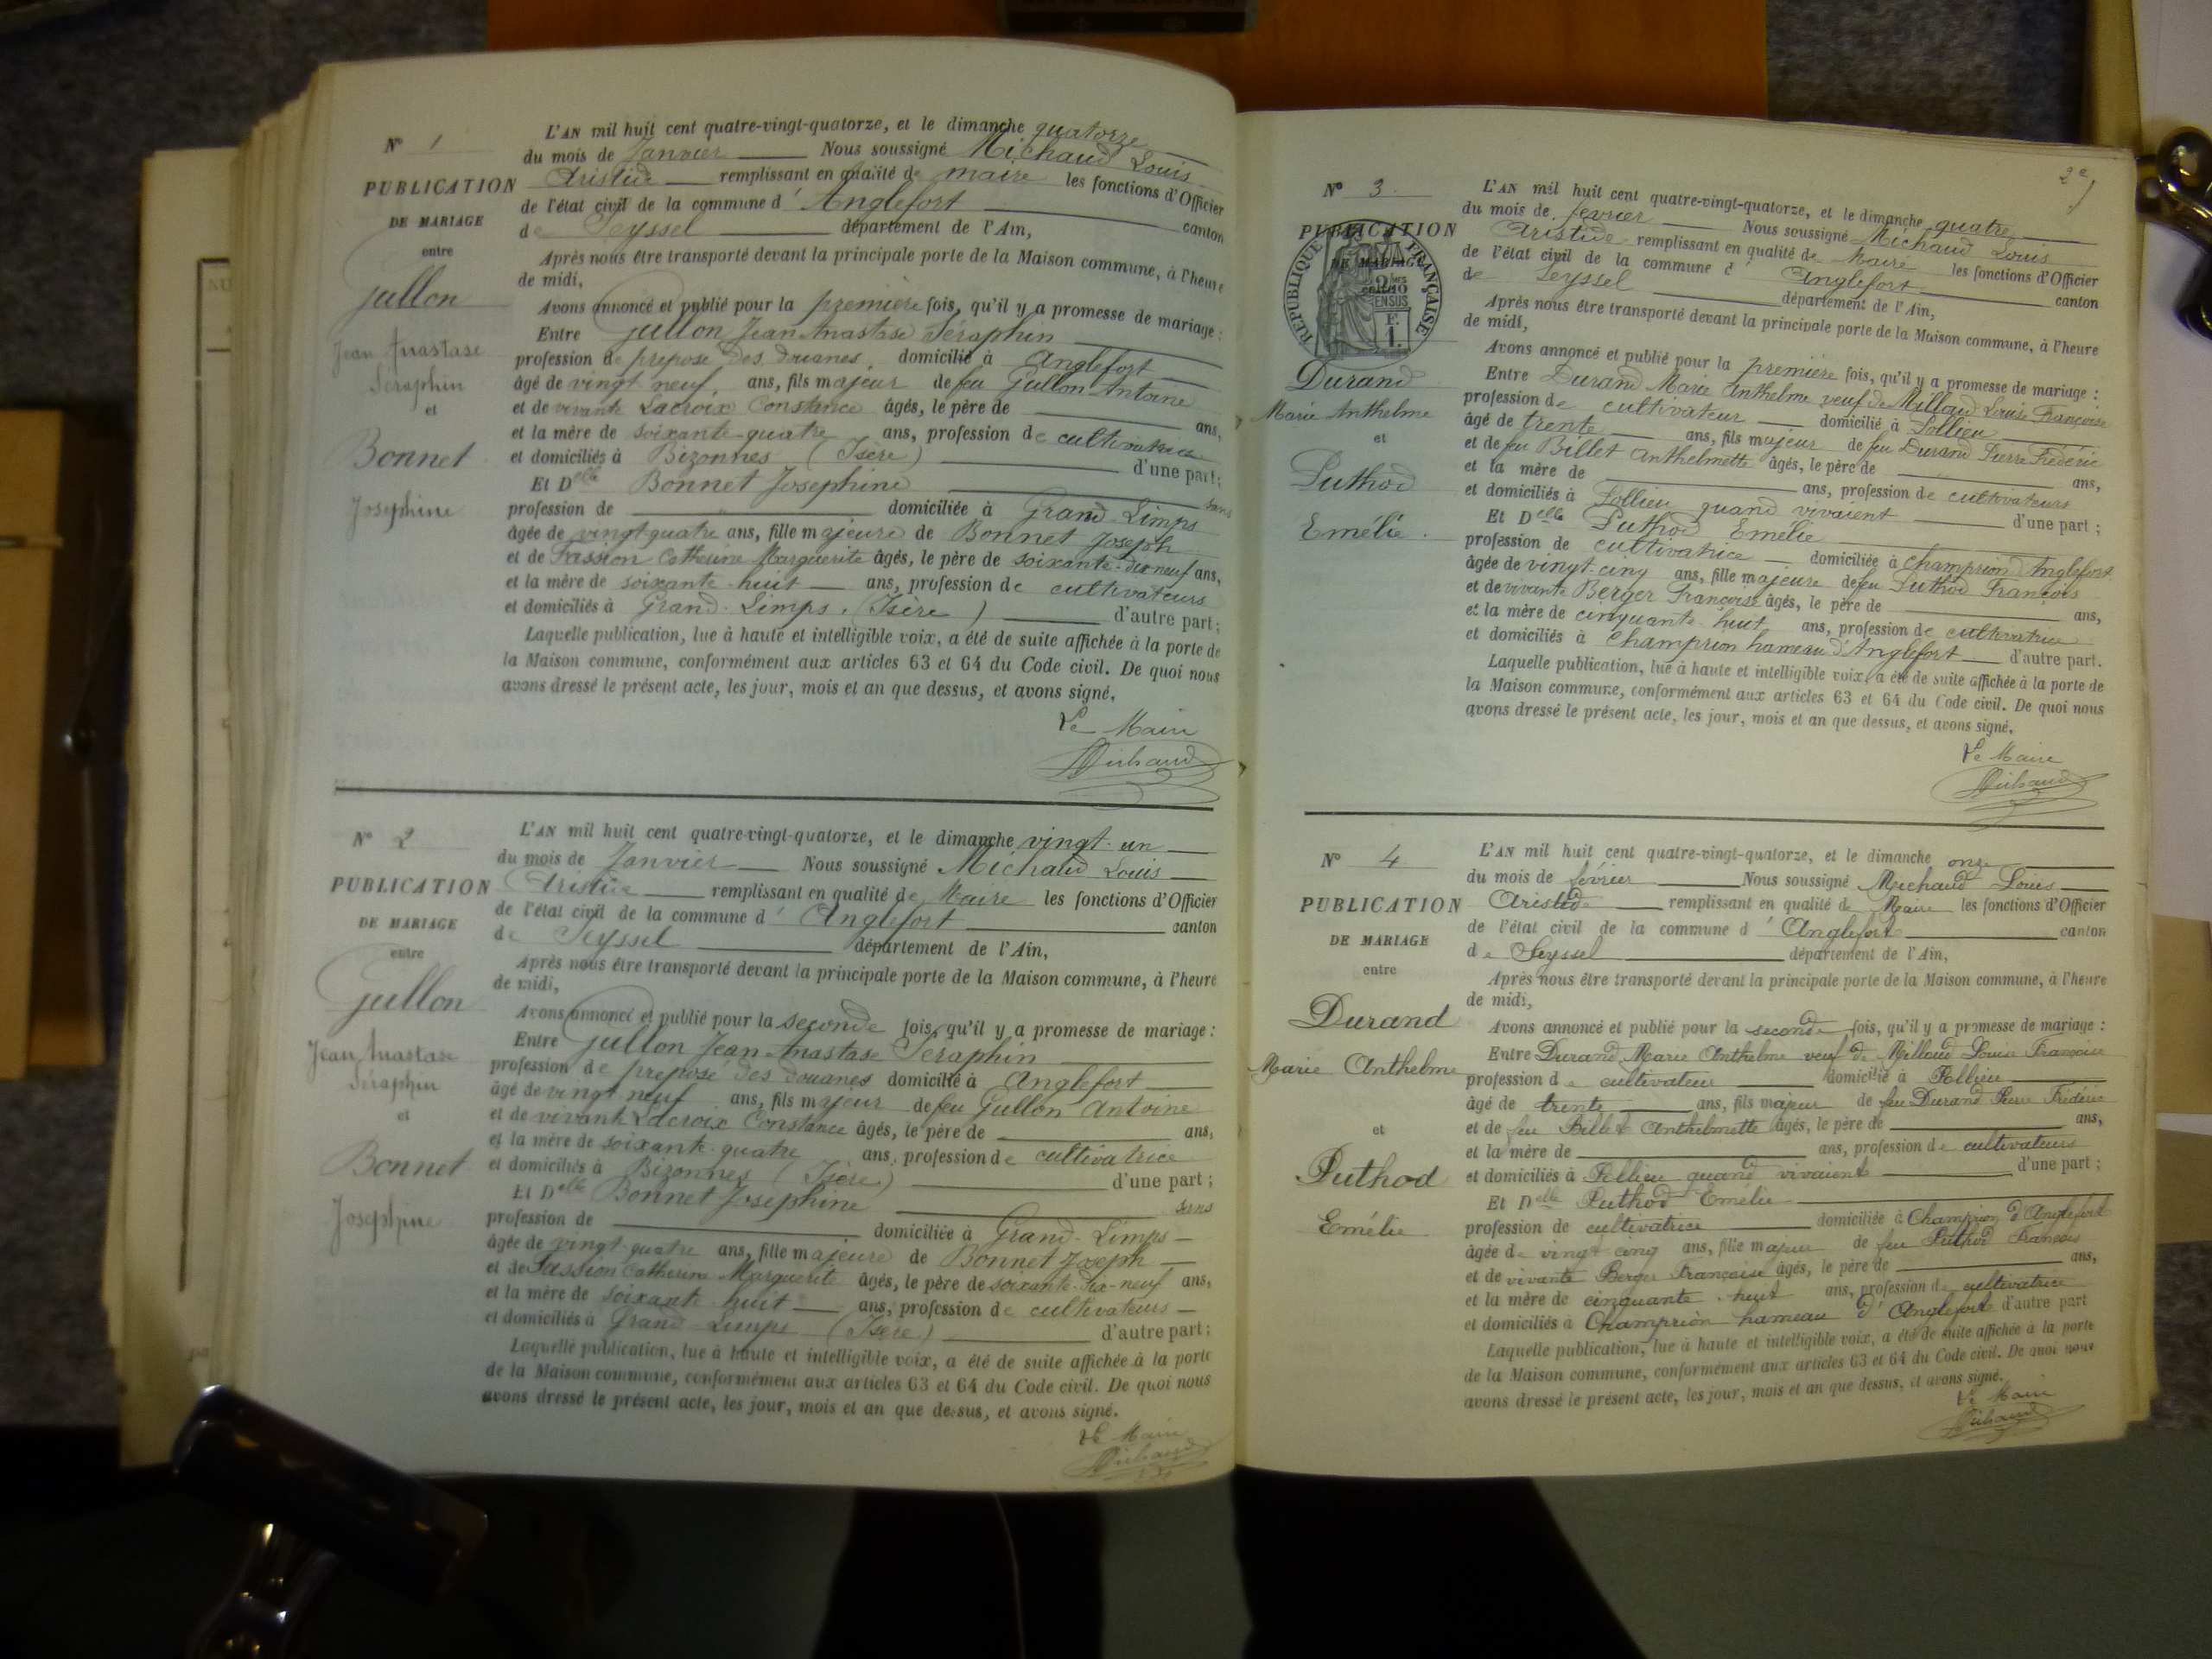 N° 1
PUBLICATION
DE MARIAGE
entre
Jullon
Jean Anastase
Séraphin
et
Bonnet
Josephine
L'AN mil huit cent quatre-vingt-quatorze, et le dimanche quatorze
du mois de Janvier Nous soussigné Michaud Louis
Aristide remplissant en qualité de maire les fonctions d'Officier
de l'état civil de la commune d'Anglefort canton
de Seyssel département de l'Ain,
Après nous être transporté devant la principale porte de la Maison commune, à l'heure
de midi,
Avons annoncé et publié pour la première fois, qu'il y a promesse de mariage :
Entre Jullon Jean Anastase Séraphin
profession de préposé des douanes domicilié à Anglefort
âgé de vingt neuf ans, fils majeur de feu Jullon Antoine
et de vivante Lacroix Constance âgés, le père de ans,
et la mère de soixante-quatre ans, profession de cultivatrice
et domiciliés à Bizonnes (Isère) d'une part ;
Et Delle Bonnet Josephine sans
profession de domiciliée à Grand-Limps
âgée de vingt-quatre ans, fille majeure de Bonnet Joseph
et de Passion Catherine Marguerite âgés, le père de soixante-dix neuf ans,
et la mère de soixante-huit ans, profession de cultivateurs
et domiciliés à Grand-Limps (Isère) d'autre part ;
Laquelle publication, lue à haute et intelligible voix, a été de suite affichée à la porte de
la Maison commune, conformément aux articles 63 et 64 du Code civil. De quoi nous
avons dressé le présent acte, les jour, mois et an que dessus, et avons signé.
Le Maire
Michaud
N° 2
PUBLICATION
DE MARIAGE
entre
Jullon
Jean Anastase
Séraphin
et
Bonnet
Josephine
L'AN mil huit cent quatre-vingt-quatorze, et le dimanche vingt-un
du mois de Janvier Nous soussigné Michaud Louis
Aristide remplissant en qualité de Maire les fonctions d'Officier
de l'état civil de la commune d'Anglefort canton
de Seyssel département de l'Ain,
Après nous être transporté devant la principale porte de la Maison commune, à l'heure
de midi,
Avons annoncé et publié pour la seconde fois, qu'il y a promesse de mariage :
Entre Jullon Jean Anastase Séraphin
profession de préposé des douanes domicilié à Anglefort
âgé de vingt neuf ans, fils majeur de feu Jullon Antoine
et de vivante Lacroix Constance âgés, le père de ans,
et la mère de soixante-quatre ans, profession de cultivatrice
et domiciliés à Bizonnes (Isère) d'une part ;
Et Delle Bonnet Josephine sans
profession de domiciliée à Grand-Limps
âgée de vingt-quatre ans, fille majeure de Bonnet Joseph
et de Passion Catherine Marguerite âgés, le père de soixante-dix-neuf ans,
et la mère de soixante-huit ans, profession de cultivateurs
et domiciliés à Grand-Limps (Isère) d'autre part ;
Laquelle publication, lue à haute et intelligible voix, a été de suite affichée à la porte
de la Maison commune, conformément aux articles 63 et 64 du Code civil. De quoi nous
avons dressé le présent acte, les jour, mois et an que dessus, et avons signé.
Le Maire
Michaud
2e
N° 3
PUBLICATION
DE MARIAGE
RÉPUBLIQUE FRANÇAISE
Durand
Marie Anthelme
et
Puthod
Emélie
L'AN mil huit cent quatre-vingt-quatorze, et le dimanche quatre
du mois de février Nous soussigné Michaud Louis
Aristide remplissant en qualité de Maire les fonctions d'Officier
de l'état civil de la commune d'Anglefort canton
de Seyssel département de l'Ain,
Après nous être transporté devant la principale porte de la Maison commune, à l'heure
de midi,
Avons annoncé et publié pour la première fois, qu'il y a promesse de mariage :
Entre Durand Marie Anthelme veuf de Millaud Louise Françoise
profession de cultivateur domicilié à Pollieu
âgé de trente ans, fils majeur de feu Durand Pierre Frédéric
et de feu Billet Anthelmette âgés, le père de ans,
et la mère de ans, profession de cultivateurs
et domiciliés à Pollieu quand vivaient d'une part ;
Et Delle Puthod Emélie
profession de cultivatrice domiciliée à Champrion d'Anglefort
âgée de vingt-cinq ans, fille majeure de feu Puthod François
et de vivante Berger Françoise âgés, le père de ans,
et la mère de cinquante-huit ans, profession de cultivatrice
et domiciliés à Champrion hameau d'Anglefort d'autre part.
Laquelle publication, lue à haute et intelligible voix, a été de suite affichée à la porte de
la Maison commune, conformément aux articles 63 et 64 du Code civil. De quoi nous
avons dressé le présent acte, les jour, mois et an que dessus, et avons signé.
Le Maire
Michaud
N° 4
PUBLICATION
DE MARIAGE
entre
Durand
Marie Anthelme
et
Puthod
Emélie
L'AN mil huit cent quatre-vingt-quatorze, et le dimanche onze
du mois de février Nous soussigné Michaud Louis
Aristide remplissant en qualité de Maire les fonctions d'Officier
de l'état civil de la commune d'Anglefort canton
de Seyssel département de l'Ain,
Après nous être transporté devant la principale porte de la Maison commune, à l'heure
de midi,
Avons annoncé et publié pour la seconde fois, qu'il y a promesse de mariage :
Entre Durand Marie Anthelme veuf de Millaud Louise Françoise
profession de cultivateur domicilié à Pollieu
âgé de trente ans, fils majeur de feu Durand Pierre Frédéric
et de feu Billet Anthelmette âgés, le père de ans,
et la mère de ans, profession de cultivateurs
et domiciliés à Pollieu quand vivaient d'une part ;
Et Delle Puthod Emélie
profession de cultivatrice domiciliée à Champrion d'Anglefort
âgée de vingt-cinq ans, fille majeur de feu Puthod François
et de vivante Berger Françoise âgés, le père de ans,
et la mère de cinquante-huit ans, profession de cultivatrice
et domiciliés à Champrion hameau d'Anglefort d'autre part
Laquelle publication, lue à haute et intelligible voix, a été de suite affichée à la porte
de la Maison commune, conformément aux articles 63 et 64 du Code civil. De quoi nous
avons dressé le présent acte, les jour, mois et an que dessus, et avons signé.
Le Maire
Michaud